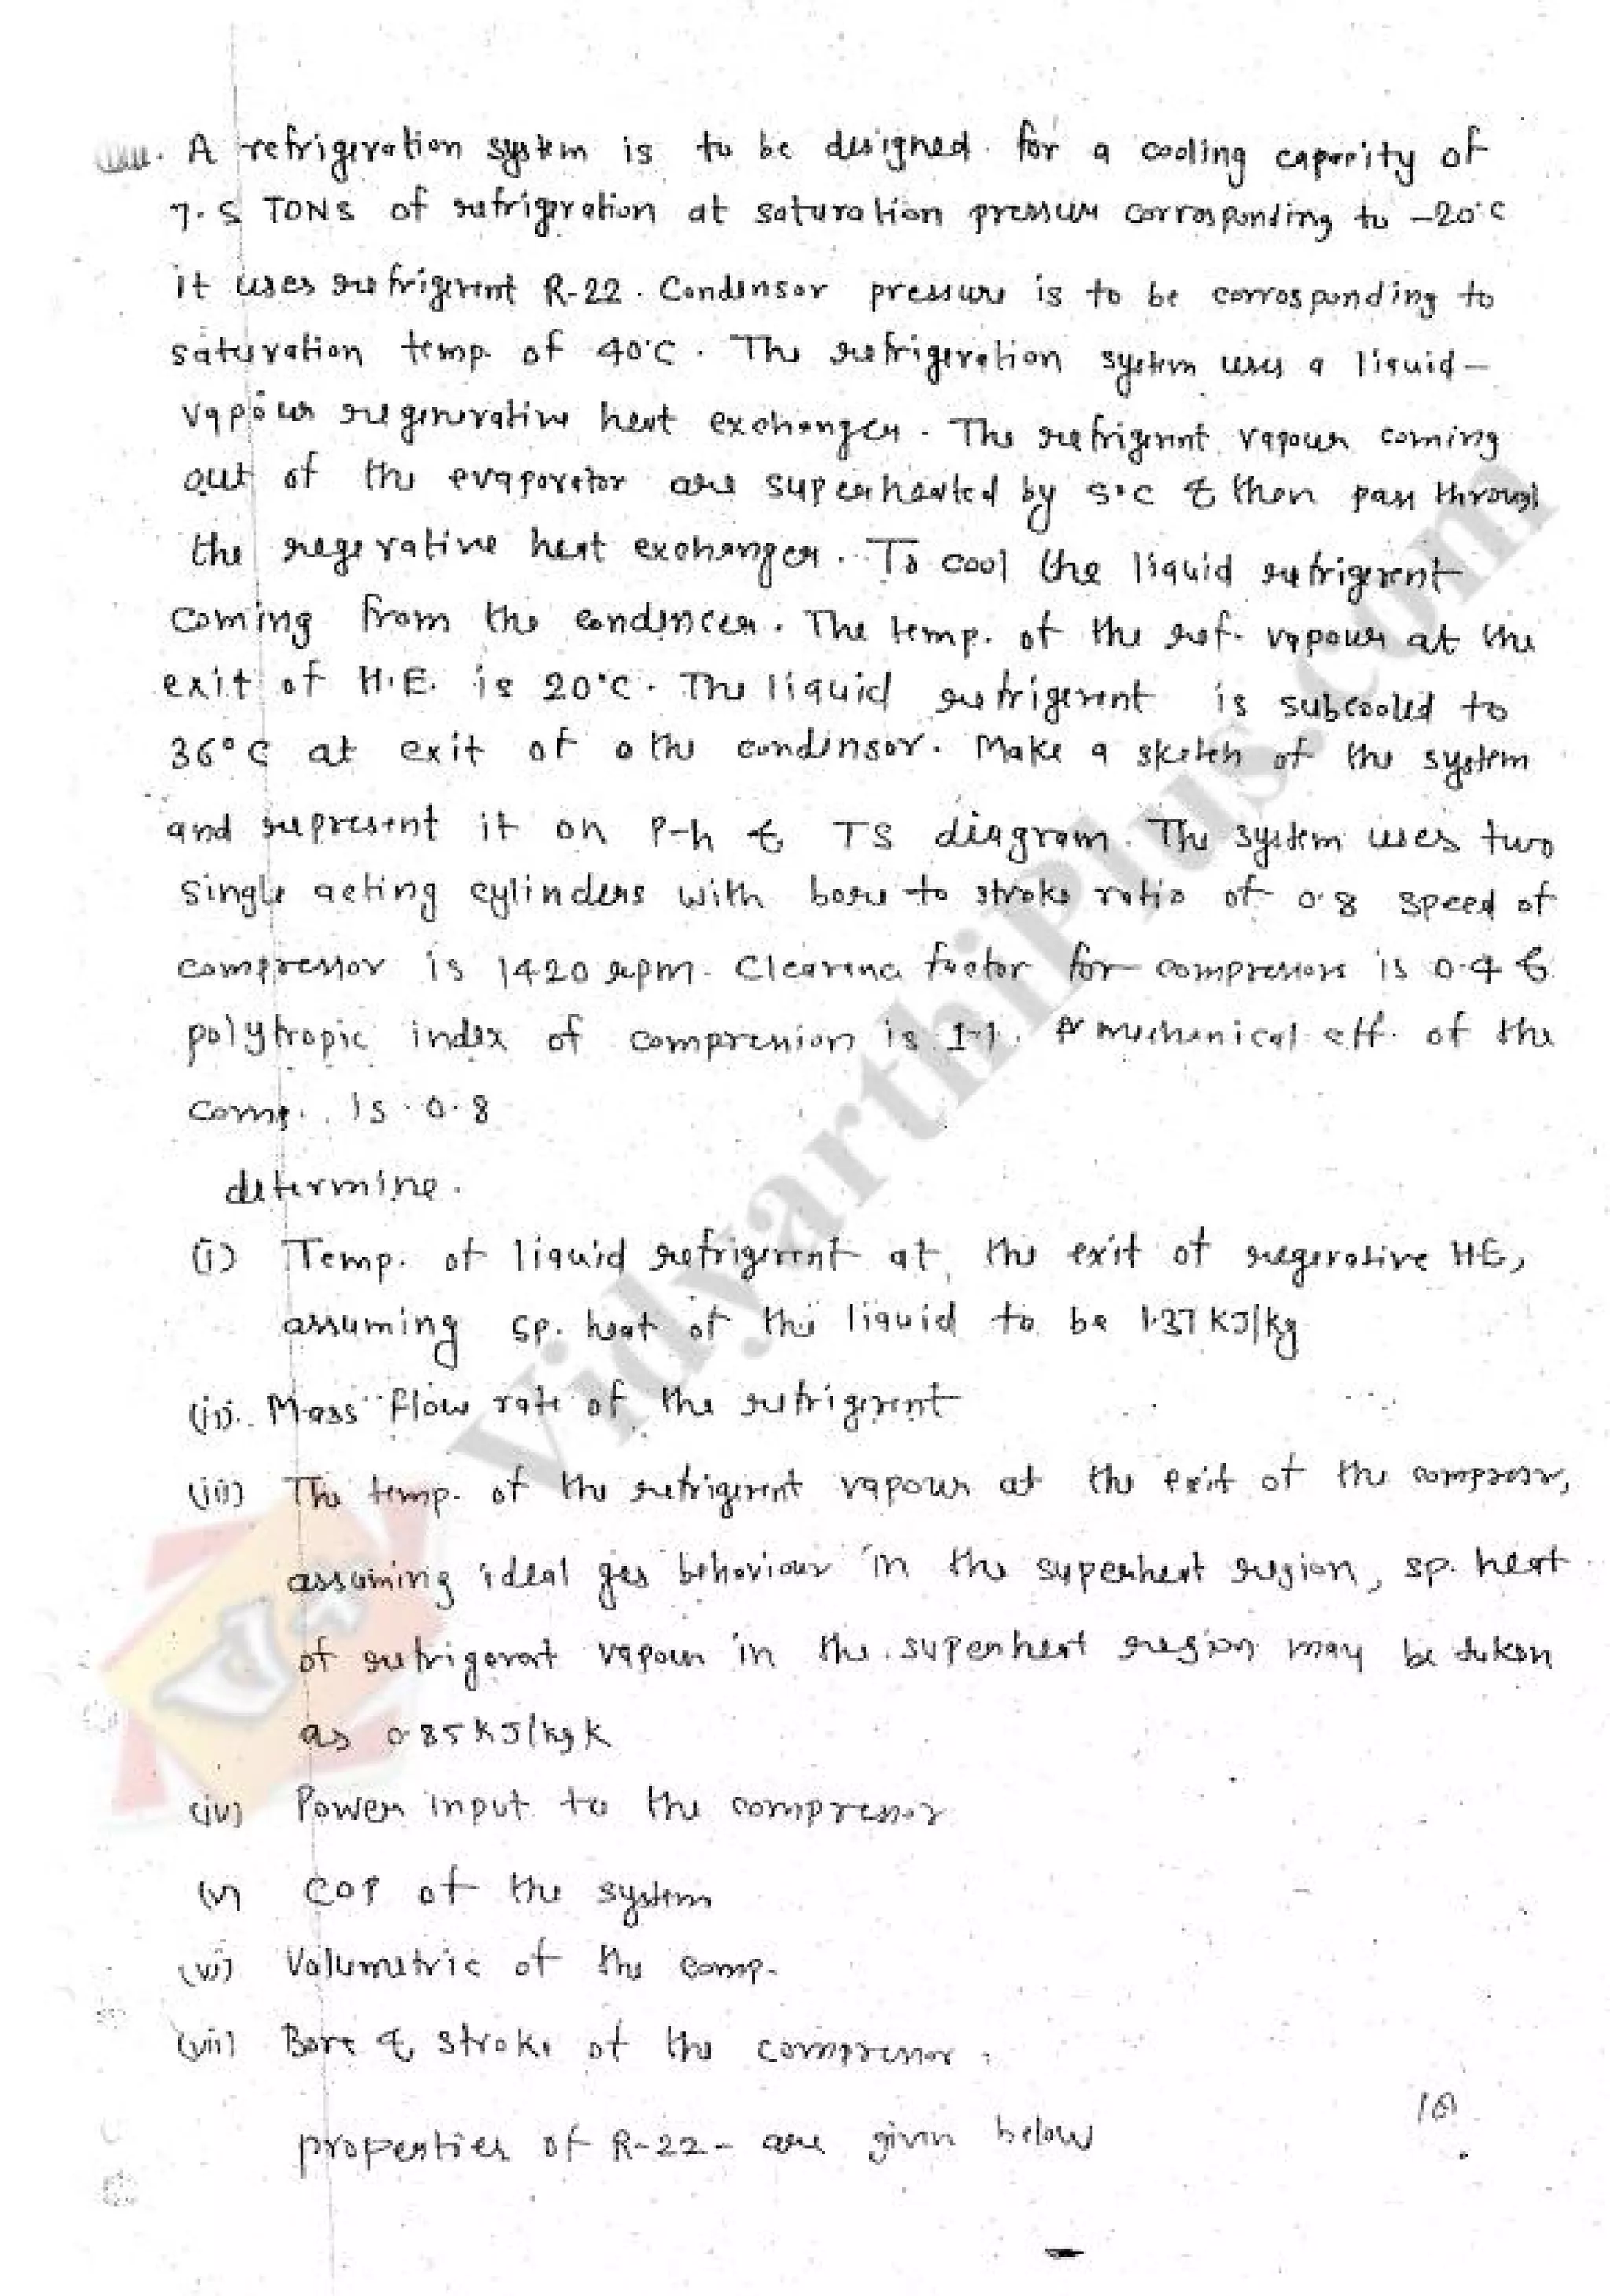 Que. A refrigeration system is to be designed. for a cooling capacity of
7.5 TONS of refrigeration at saturation pressure corrosponding to -20°C
it uses refrigerent R-22. Condensor pressure is to be corrosponding to
saturation temp. of 40°C. The refrigeration system uses a liquid-
vapour regenerative heat exchanger. The refrigerent vapour coming
out of the evaporator are superheated by 5°C & then pass through
the regerative heat exchanger. To cool the liquid refrigerent
coming from the condencer. The temp. of the ref. vapour at the
exit of H.E. is 20°C. The liquid refrigerent is subcooled to
36°C at exit of the condensor. Make a sketch of the system
and represent it on P-h & TS diagram. The system uses two
single acting cylinders with bore to stroke ratio of 0.8 speed of
compressor is 1420 rpm. Clearence factor for compressors is 0.4 &
polytropic index of compression is 1.1. mechanical eff. of the
comp. is 0.8
determine.
(i) Temp. of liquid refrigerent at the exit of regerative HE,
assuming sp. heat of the liquid to be 1.37 KJ/kg
(ii). Mass flow rate of the refrigerent
(iii) The temp. of the refrigerent vapour at the exit of the compressor,
assuming ideal gas behaviour in the superheat region, sp. heat
of refrigerant vapour in the superheat region may be taken
as 0.85 KJ/kg K
(iv) Power input to the compressor
(v) COP of the system
(vi) Volumetric of the comp.
(vii) Bore & stroke of the compressor.
properties of R-22- are given below
VidyarthiPlus.com